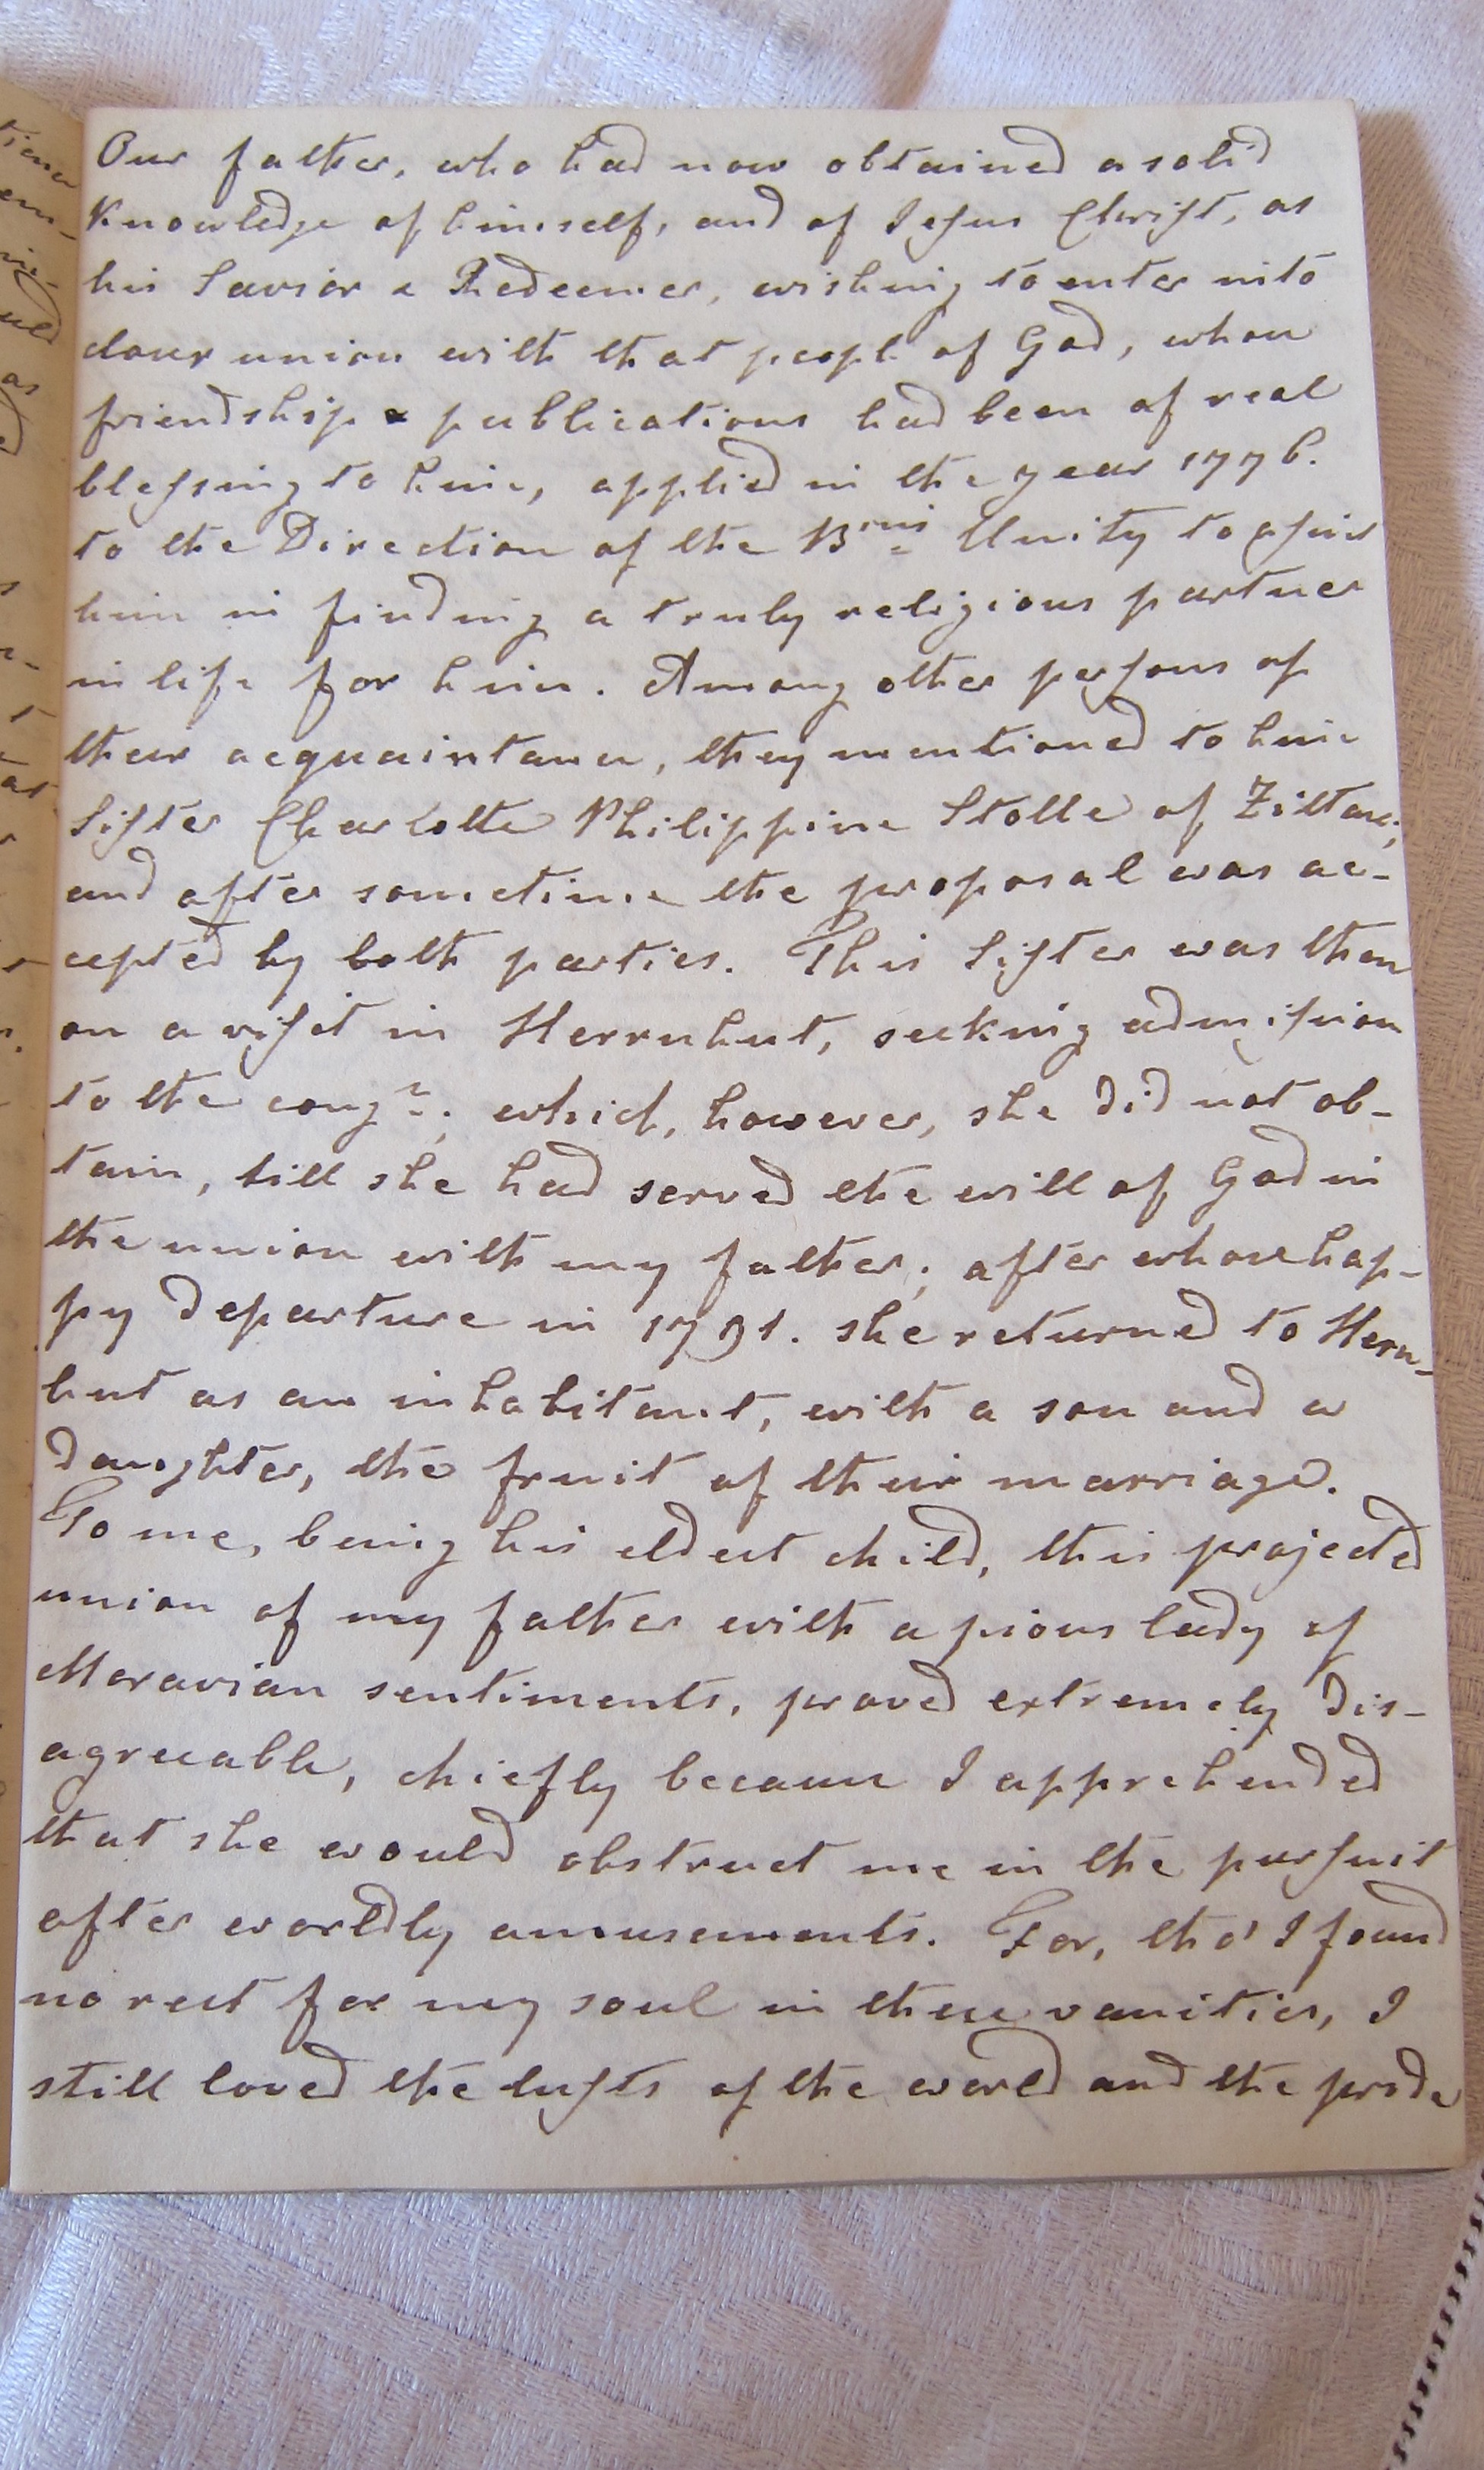 Our father, who had now obtained a solid
Knowledge of himself, and of Jesus Christ, as
his Savior & Redeemer, wishing to enter into
closer union with that people of God, whose
friendship & publications had been of real
blessing to him, applied in the year 1776.
to the Direction of the Brns Unity to assist
him in finding a truly religious partner
in life for him. Among other persons of
their acquaintance, they mentioned to him
Sister Charlotte Philippine Stolle of Zittau;
and after sometime the proposal was ac-
cepted by both parties. This Sister was then
on a visit in Herrnhut, seeking admission
to the congn; which, however, she did not ob-
tain, till she had served the will of God in
the union with my father; after whose hap-
py departure in 1791. she returned to Herrn-
hut as an inhabitant, with a son and a
daughter, the fruit of their marriage.
To me, being his eldest child, this projected
union of my father with a pious lady of
Moravian sentiments, proved extremely dis-
agreeable, chiefly because I apprehended
that she would obstruct me in the pursuit
after worldly amusements. For, tho' I found
no rest for my soul in these vanities, I
still loved the lusts of the world and the pride